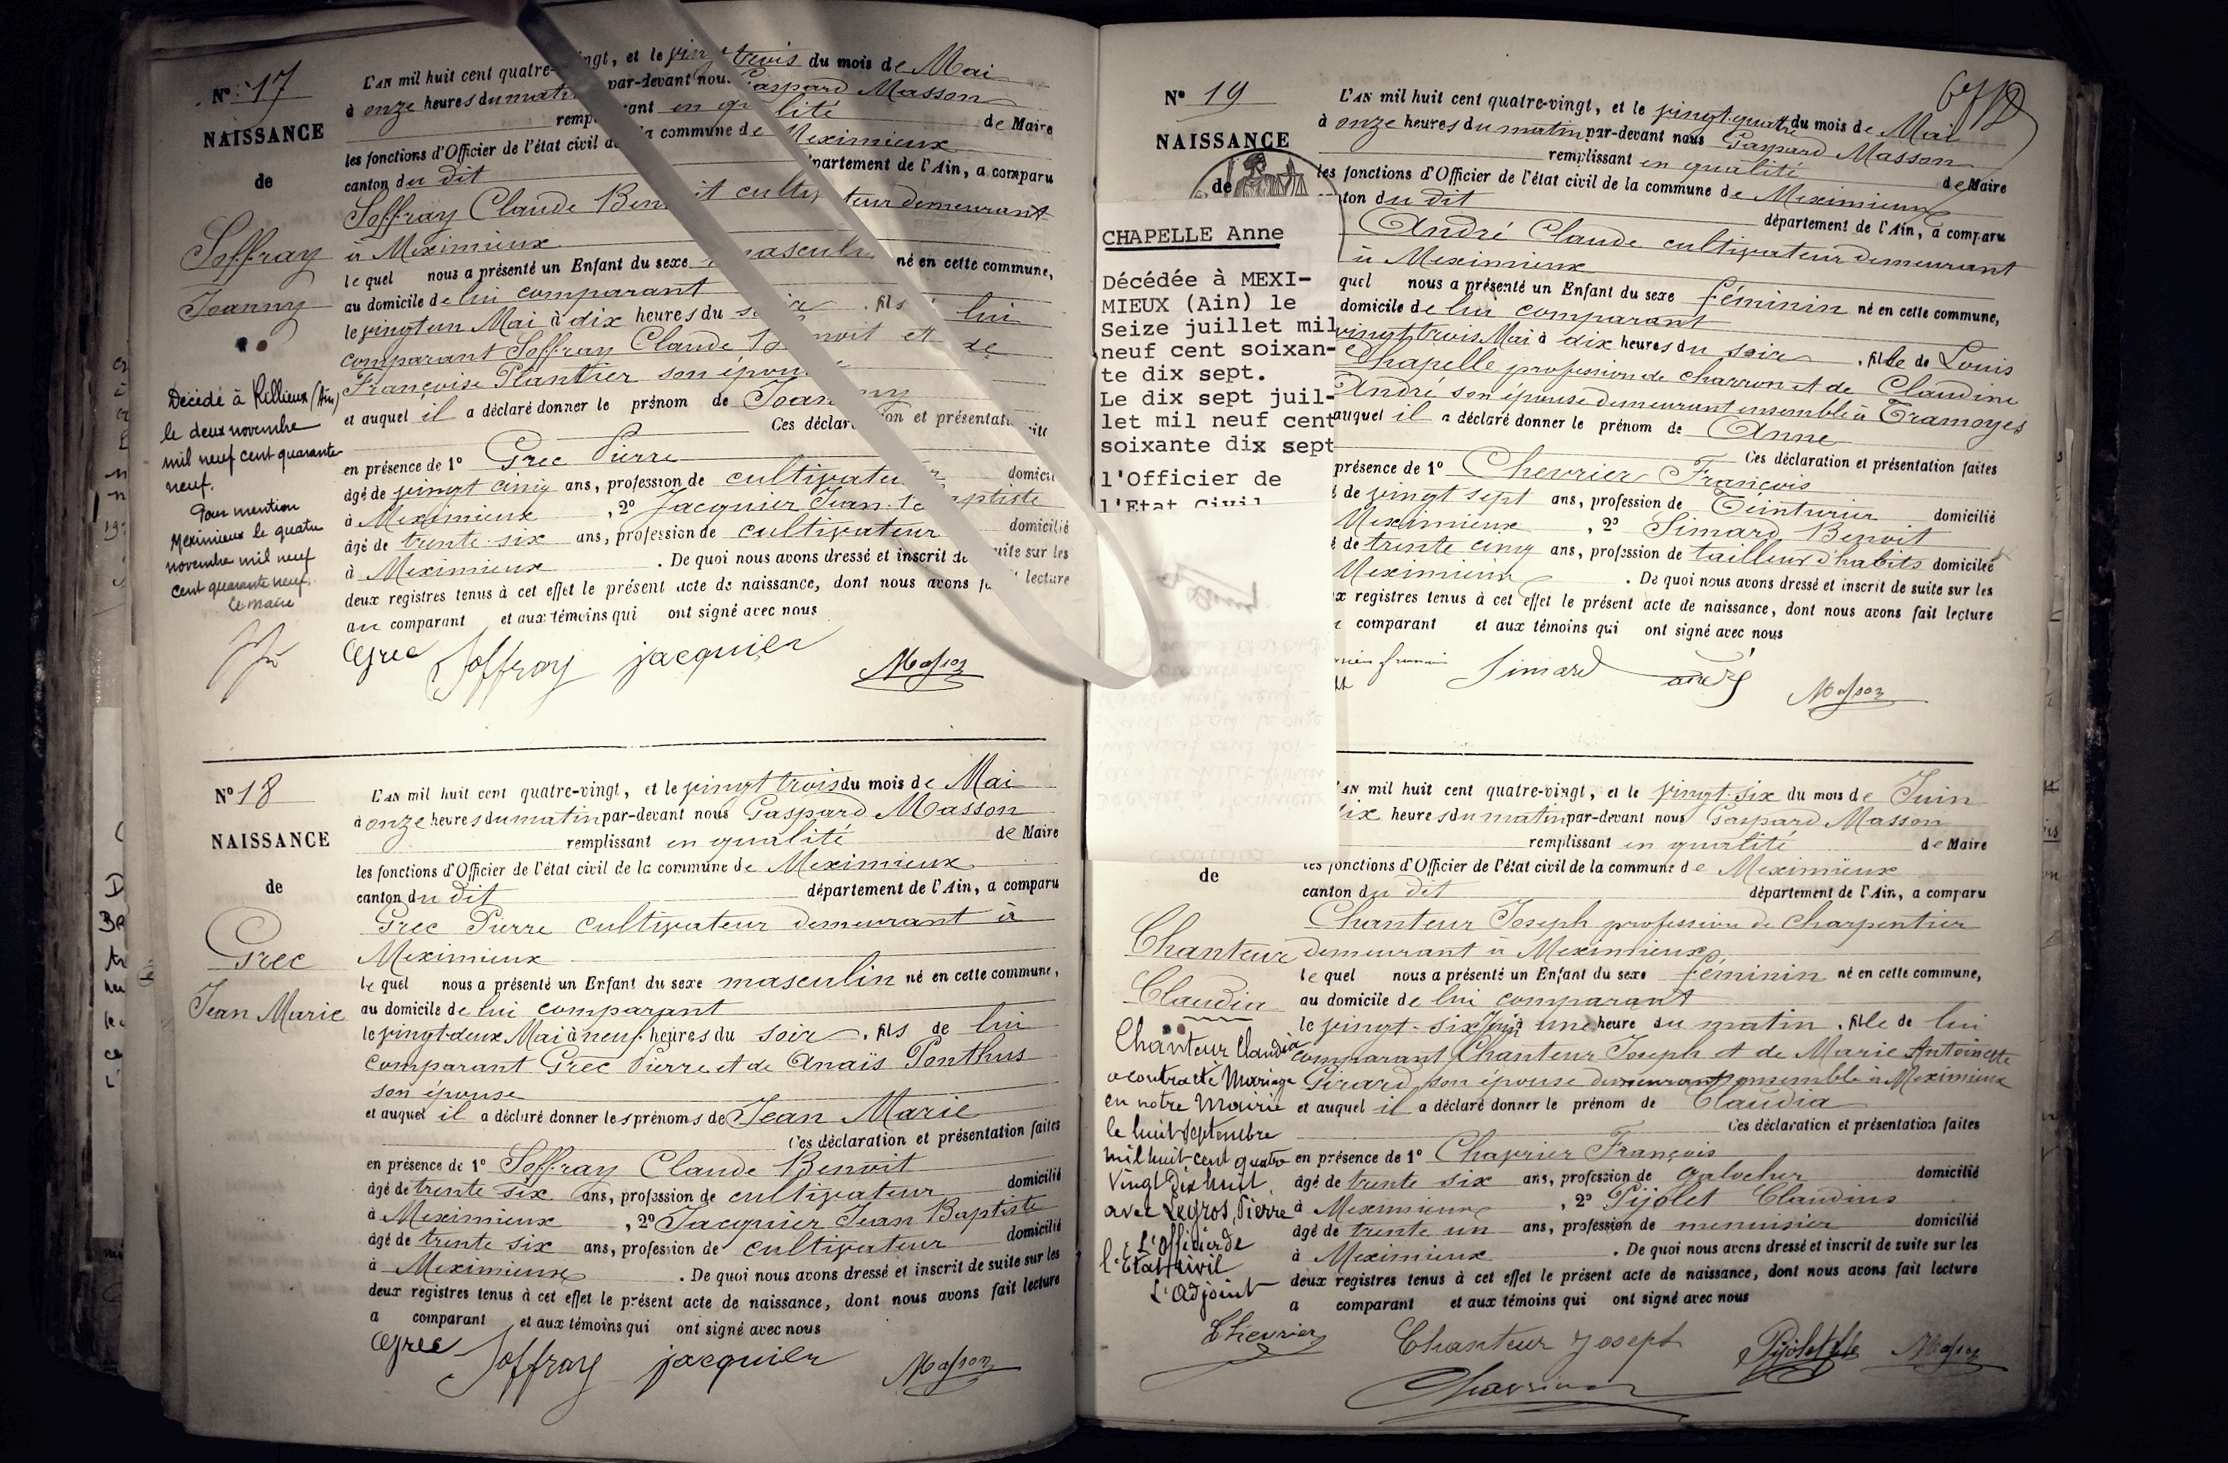 N° 17
NAISSANCE
de
Soffray
Joanny
Décédé à Rillieux (Ain)
le deux novembre
mil neuf cent quarante
neuf.
Pour mention
Meximieux le quatre
novembre mil neuf
cent quarante neuf.
Le Maire
L'AN mil huit cent quatre-vingt, et le vingt trois du mois de Mai
à onze heures du matin par-devant nous Gaspard Masson
remplissant en qualité de Maire
les fonctions d'Officier de l'état civil de la commune de Meximieux
canton du dit département de l'Ain, a comparu
Soffray Claude Benoit cultivateur demeurant
à Meximieux
lequel nous a présenté un Enfant du sexe masculin né en cette commune,
au domicile de lui comparant
le vingt un Mai à dix heures du soir . fils de lui
comparant Soffray Claude Benoit et de
Françoise Plantier son épouse
et auquel il a déclaré donner le prénom de Joanny
Ces déclaration et présentation faites
en présence de 1° Grec Pierre
âgé de vingt cinq ans, profession de cultivateur domicilié
à Meximieux , 2° Jacquier Jean Baptiste
âgé de trente six ans, profession de cultivateur domicilié
à Meximieux . De quoi nous avons dressé et inscrit de suite sur les
deux registres tenus à cet effet le présent acte de naissance, dont nous avons fait lecture
au comparant et aux témoins qui ont signé avec nous
Grec Soffray jacquier Masson
N° 18
NAISSANCE
de
Grec
Jean Marie
L'AN mil huit cent quatre-vingt, et le vingt trois du mois de Mai
à onze heures du matin par-devant nous Gaspard Masson
remplissant en qualité de Maire
les fonctions d'Officier de l'état civil de la commune de Meximieux
canton du dit département de l'Ain, a comparu
Grec Pierre cultivateur demeurant à
Meximieux
lequel nous a présenté un Enfant du sexe masculin né en cette commune,
au domicile de lui comparant
le vingt-deux Mai à neuf heures du soir . fils de lui
comparant Grec Pierre et de Anaïs Ponthus
son épouse
et auquel il a déclaré donner les prénoms de Jean Marie
Ces déclaration et présentation faites
en présence de 1° Soffray Claude Benoit
âgé de trente six ans, profession de cultivateur domicilié
à Meximieux , 2° Jacquier Jean Baptiste
âgé de trente six ans, profession de cultivateur domicilié
à Meximieux . De quoi nous avons dressé et inscrit de suite sur les
deux registres tenus à cet effet le présent acte de naissance, dont nous avons fait lecture
a comparant et aux témoins qui ont signé avec nous
Grec Soffray jacquier Masson
N° 19
NAISSANCE
de
CHAPELLE Anne
Décédée à MEXI-
MIEUX (Ain) le
Seize juillet mil
neuf cent soixan-
te dix sept.
Le dix sept juil-
let mil neuf cent
soixante dix sept
l'Officier de
l'Etat Civil
L'AN mil huit cent quatre-vingt, et le vingt quatre du mois de Mai
à onze heures du matin par-devant nous Gaspard Masson
remplissant en qualité de Maire
les fonctions d'Officier de l'état civil de la commune de Meximieux
ton du dit département de l'Ain, a comparu
André Claude cultivateur demeurant
à Meximieux
quel nous a présenté un Enfant du sexe féminin né en cette commune,
domicile de lui comparant
vingt trois Mai à dix heures du soir . fille de Louis
Chapelle profession de charron et de Claudine
André son épouse demeurant ensemble à Tramoyes
auquel il a déclaré donner le prénom de Anne
Ces déclaration et présentation faites
présence de 1° Chevrier François
de vingt sept ans, profession de Teinturier domicilié
Meximieux , 2° Simard Benoit
de trente cinq ans, profession de tailleur d'habits domicilié
Meximieux . De quoi nous avons dressé et inscrit de suite sur les
x registres tenus à cet effet le présent acte de naissance, dont nous avons fait lecture
comparant et aux témoins qui ont signé avec nous
Simard andré Masson
de
Chanteur
Claudia
Chanteur Claudia
a contracté Mariage
en notre Mairie
le huit septembre
mil huit cent quatre
Vingt Dix huit
avec Legros, Pierre
L'Officier de
l'Etat civil
L'Adjoint
'AN mil huit cent quatre-vingt, et le vingt-six du mois de Juin
ix heures du matin par-devant nous Gaspard Masson
remplissant en qualité de Maire
les fonctions d'Officier de l'état civil de la commune de Meximieux
canton du dit département de l'Ain, a comparu
Chanteur Joseph profession de charpentier
demeurant à Meximieux
lequel nous a présenté un Enfant du sexe féminin né en cette commune,
au domicile de lui comparant
le vingt-six Juin à une heure du matin . fille de lui
comparant Chanteur Joseph et de Marie Antoinette
Girard son épouse demeurant ensemble à Meximieux
et auquel il a déclaré donner le prénom de Claudia
Ces déclaration et présentation faites
en présence de 1° Chavrier François
âgé de trente six ans, profession de galocher domicilié
à Meximieux , 2° Pijolet Claudius
âgé de trente un ans, profession de menuisier domicilié
à Meximieux . De quoi nous avons dressé et inscrit de suite sur les
deux registres tenus à cet effet le présent acte de naissance, dont nous avons fait lecture
a comparant et aux témoins qui ont signé avec nous
Chanteur Joseph Masson